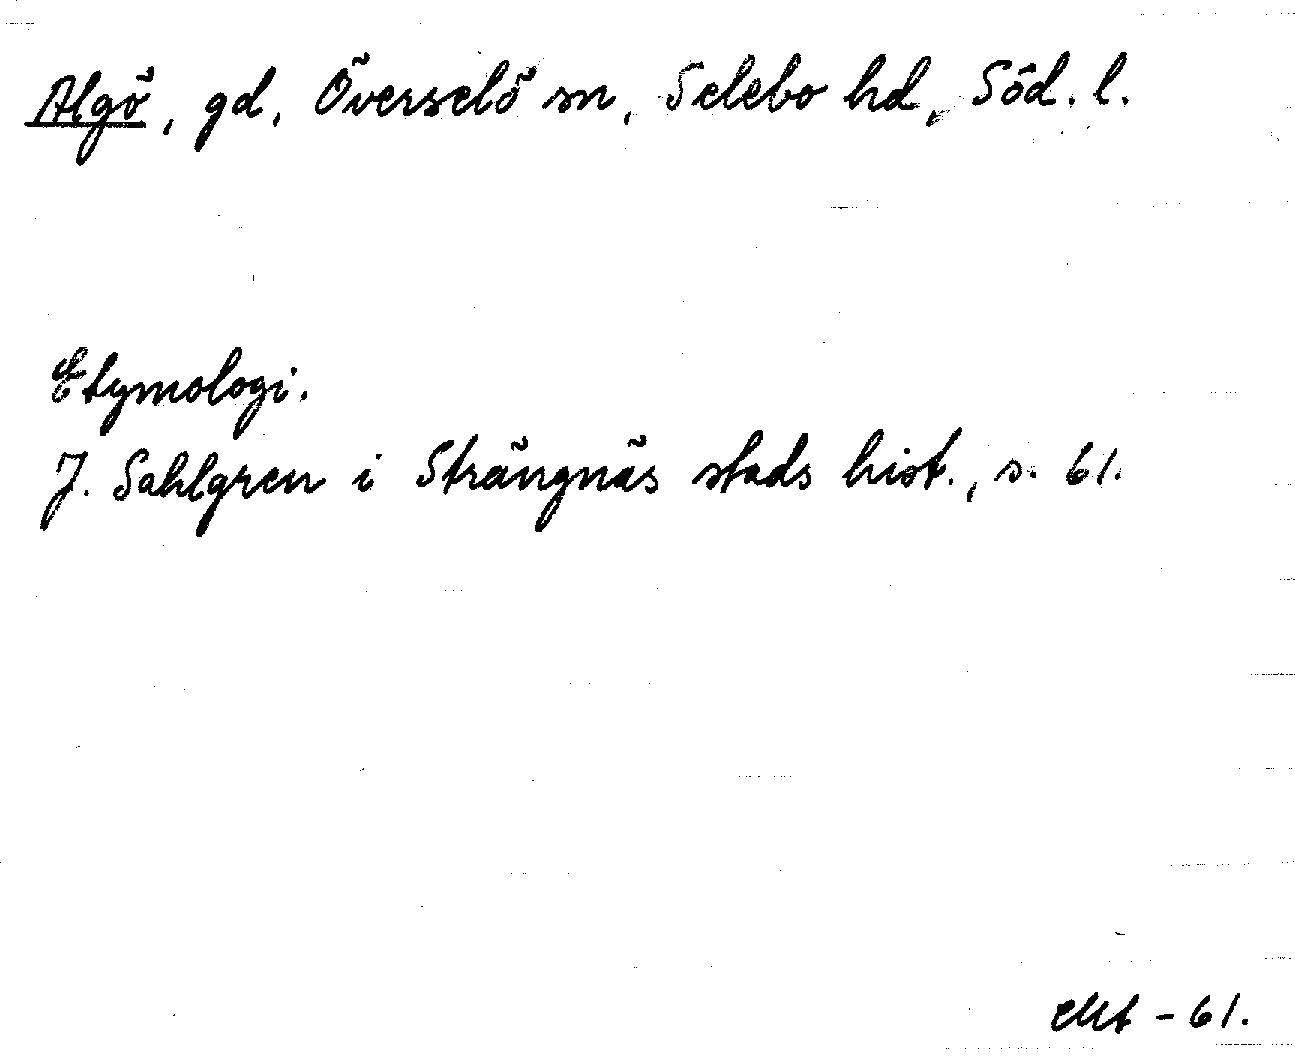 Algö, gd, Överselö sn, Selebo hd, Söd. l.
Etymologi.
J. Sahlgren i Strängnäs stads hist., s. 61.
-61.